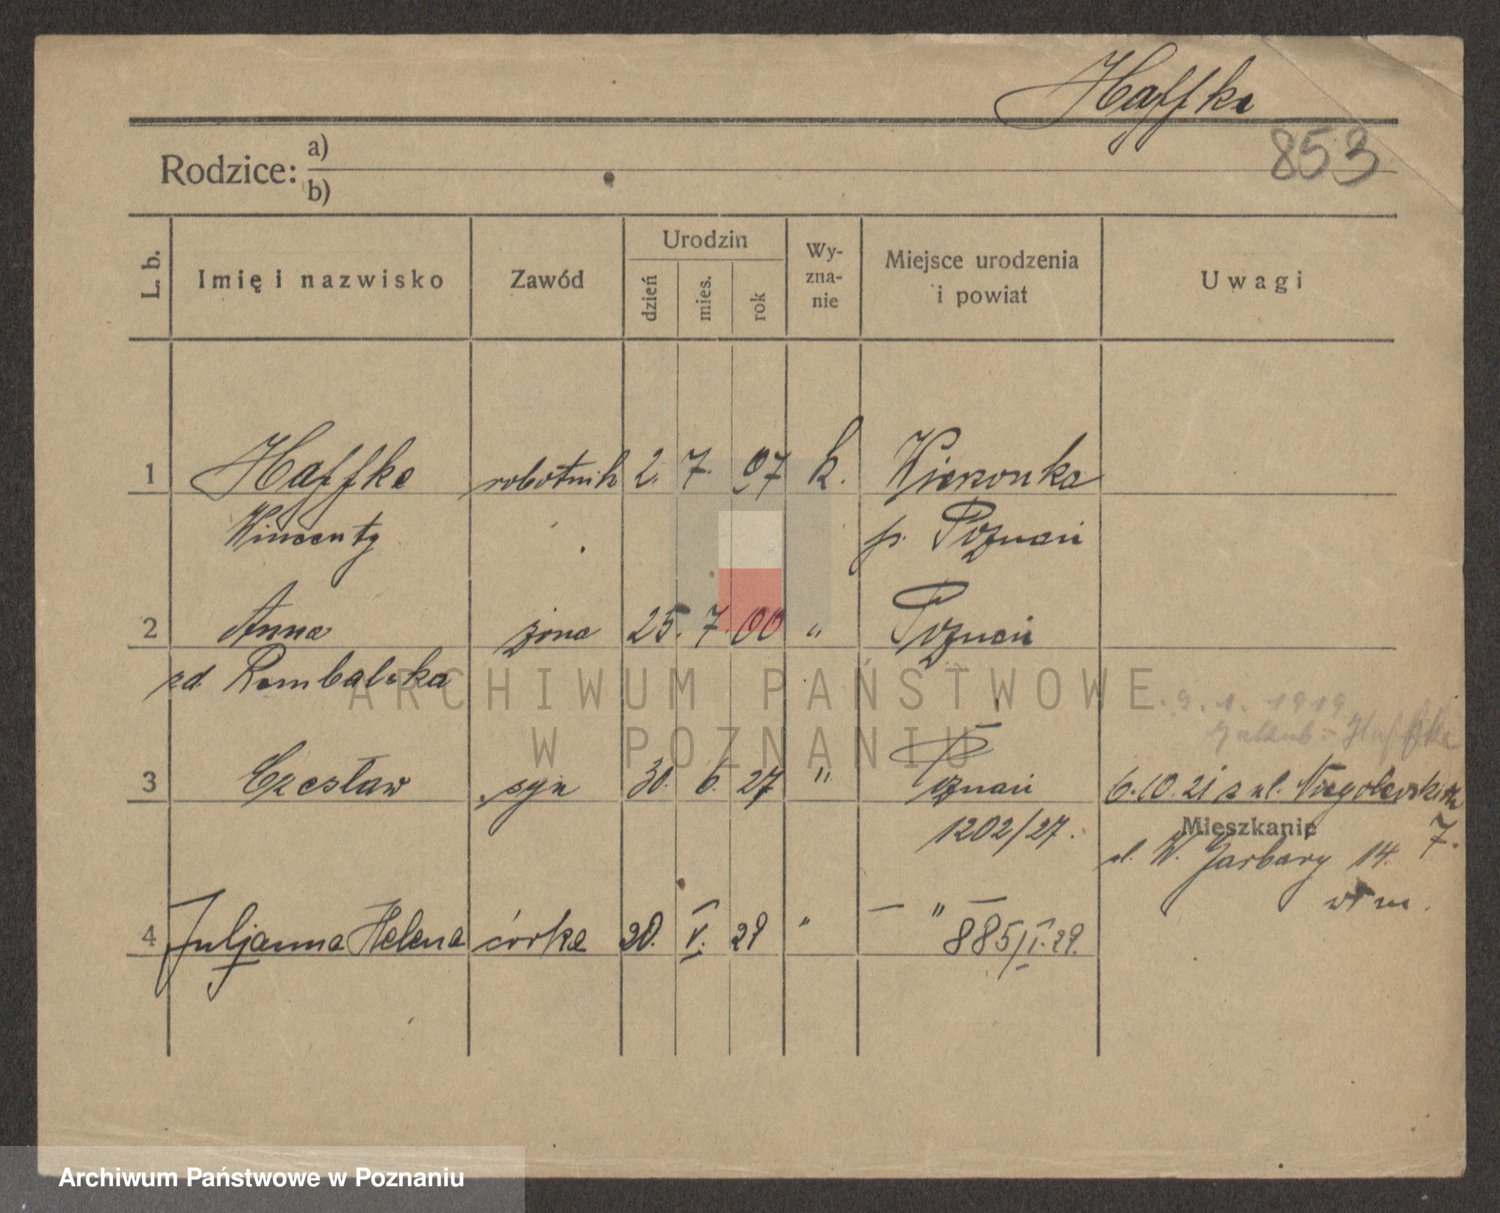 Haffke
853
Rodzice: a)
b)
L. b.
Imię i nazwisko
Zawód
Urodzin
dzień
mies.
rok
Wy-
zna-
nie
Miejsce urodzenia
i powiat
Uwagi
1 Haffke robotnik 2. 7. 07 k. Wierzonka
Wincenty p. Poznań
2 Anna żona 25. 7. 00 " Poznań
zd. Rembalska
ARCHIWUM PAŃSTWOWE
W POZNANIU
9. 1. 1919
Haffke
3 Czesław syn 30. 6. 27 " Poznań 6.10.21 z ul. Niegolewskich
1202/27. Mieszkanie 7.
ul. W. Garbary 14.
w m.
4 Juljanna Helena córka 20. V. 29 " — " —
885/V.29.
Archiwum Państwowe w Poznaniu